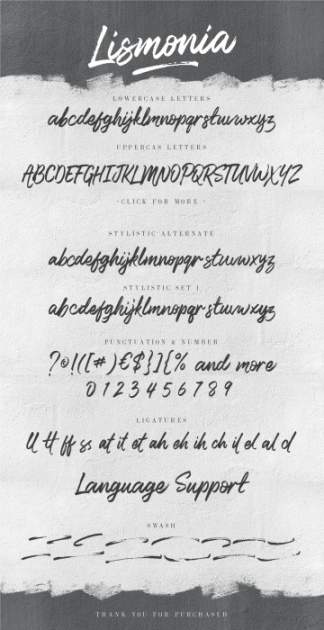 Lismonia
LOWERCASE LETTERS
abcdefghijklmnopqrstuvwxyz
UPPERCAS LETTERS
ABCDEFGHIJKLMNOPQRSTUVWXYZ
-CLICK FOR MORE -
STYLISTIC ALTERNATE
abcdefghijklmnopqrstuvwxyz
STYLISTIC SET 1
abcdefghijklmnopqrstuvwxyz
PUNCTUATION & NUMBER
?©!([#)€$}]{% and more
0 1 2 3 4 5 6 7 8 9
LIGATURES
ll tt ff ss at it et ah eh ih ch il el al d
Language Support
SWASH
THANK YOU FOR PURCHASED